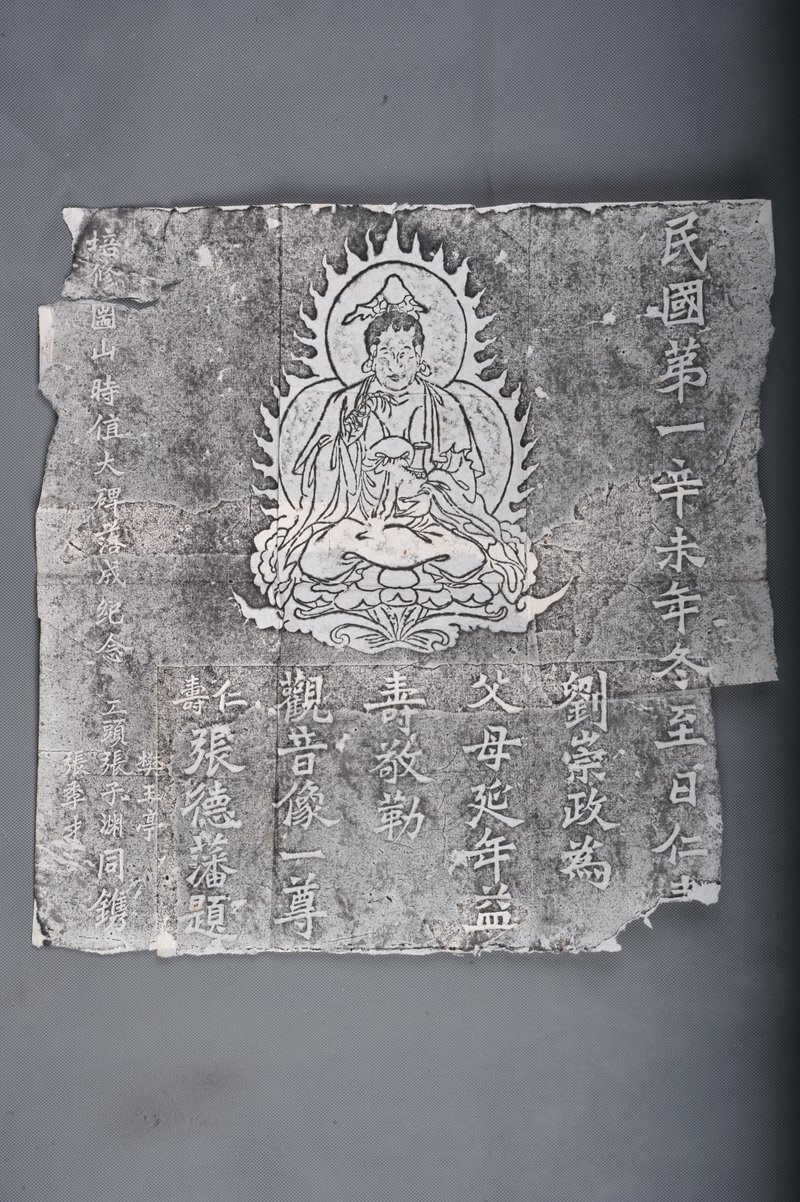 民國第一辛未年冬至日仁
劉崇政為
父母延年益
壽敬勒
觀音像一尊
仁壽
張德藩題
培修圖山時值大碑落成紀念
工頭張子渊
樊玉亭
張季才
同鐫